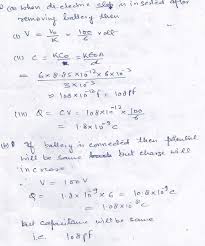 (a) When di-electric slab is inserted after
removing battery then
(i) V = V₀/K = 100/6 volt
(ii) C = KC₀ = Kε₀A/d
= 6 × 8.85 × 10⁻¹² × 6 × 10⁻³ / 3 × 10⁻³
= 108 × 10⁻¹² f = 108 pf
(iii) Q = CV = 108 × 10⁻¹² × 100/6
= 1.8 × 10⁻⁹ c
(b) If battery is connected then potential
will be same but charge will
increase
V = 100 V
Q = 1.8 × 10⁻⁹ × 6 = 10.8 × 10⁻⁹ c
but capacitance will be same
i.e. 108 pf